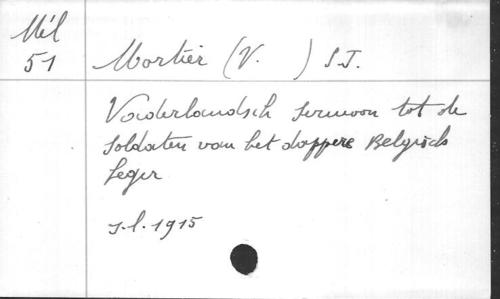 Mél
51
Mortier (V. ) S.J.
Vaderlandsch sermoon tot de
soldaten van het dappere Belgisch
Leger
s.l. 1915